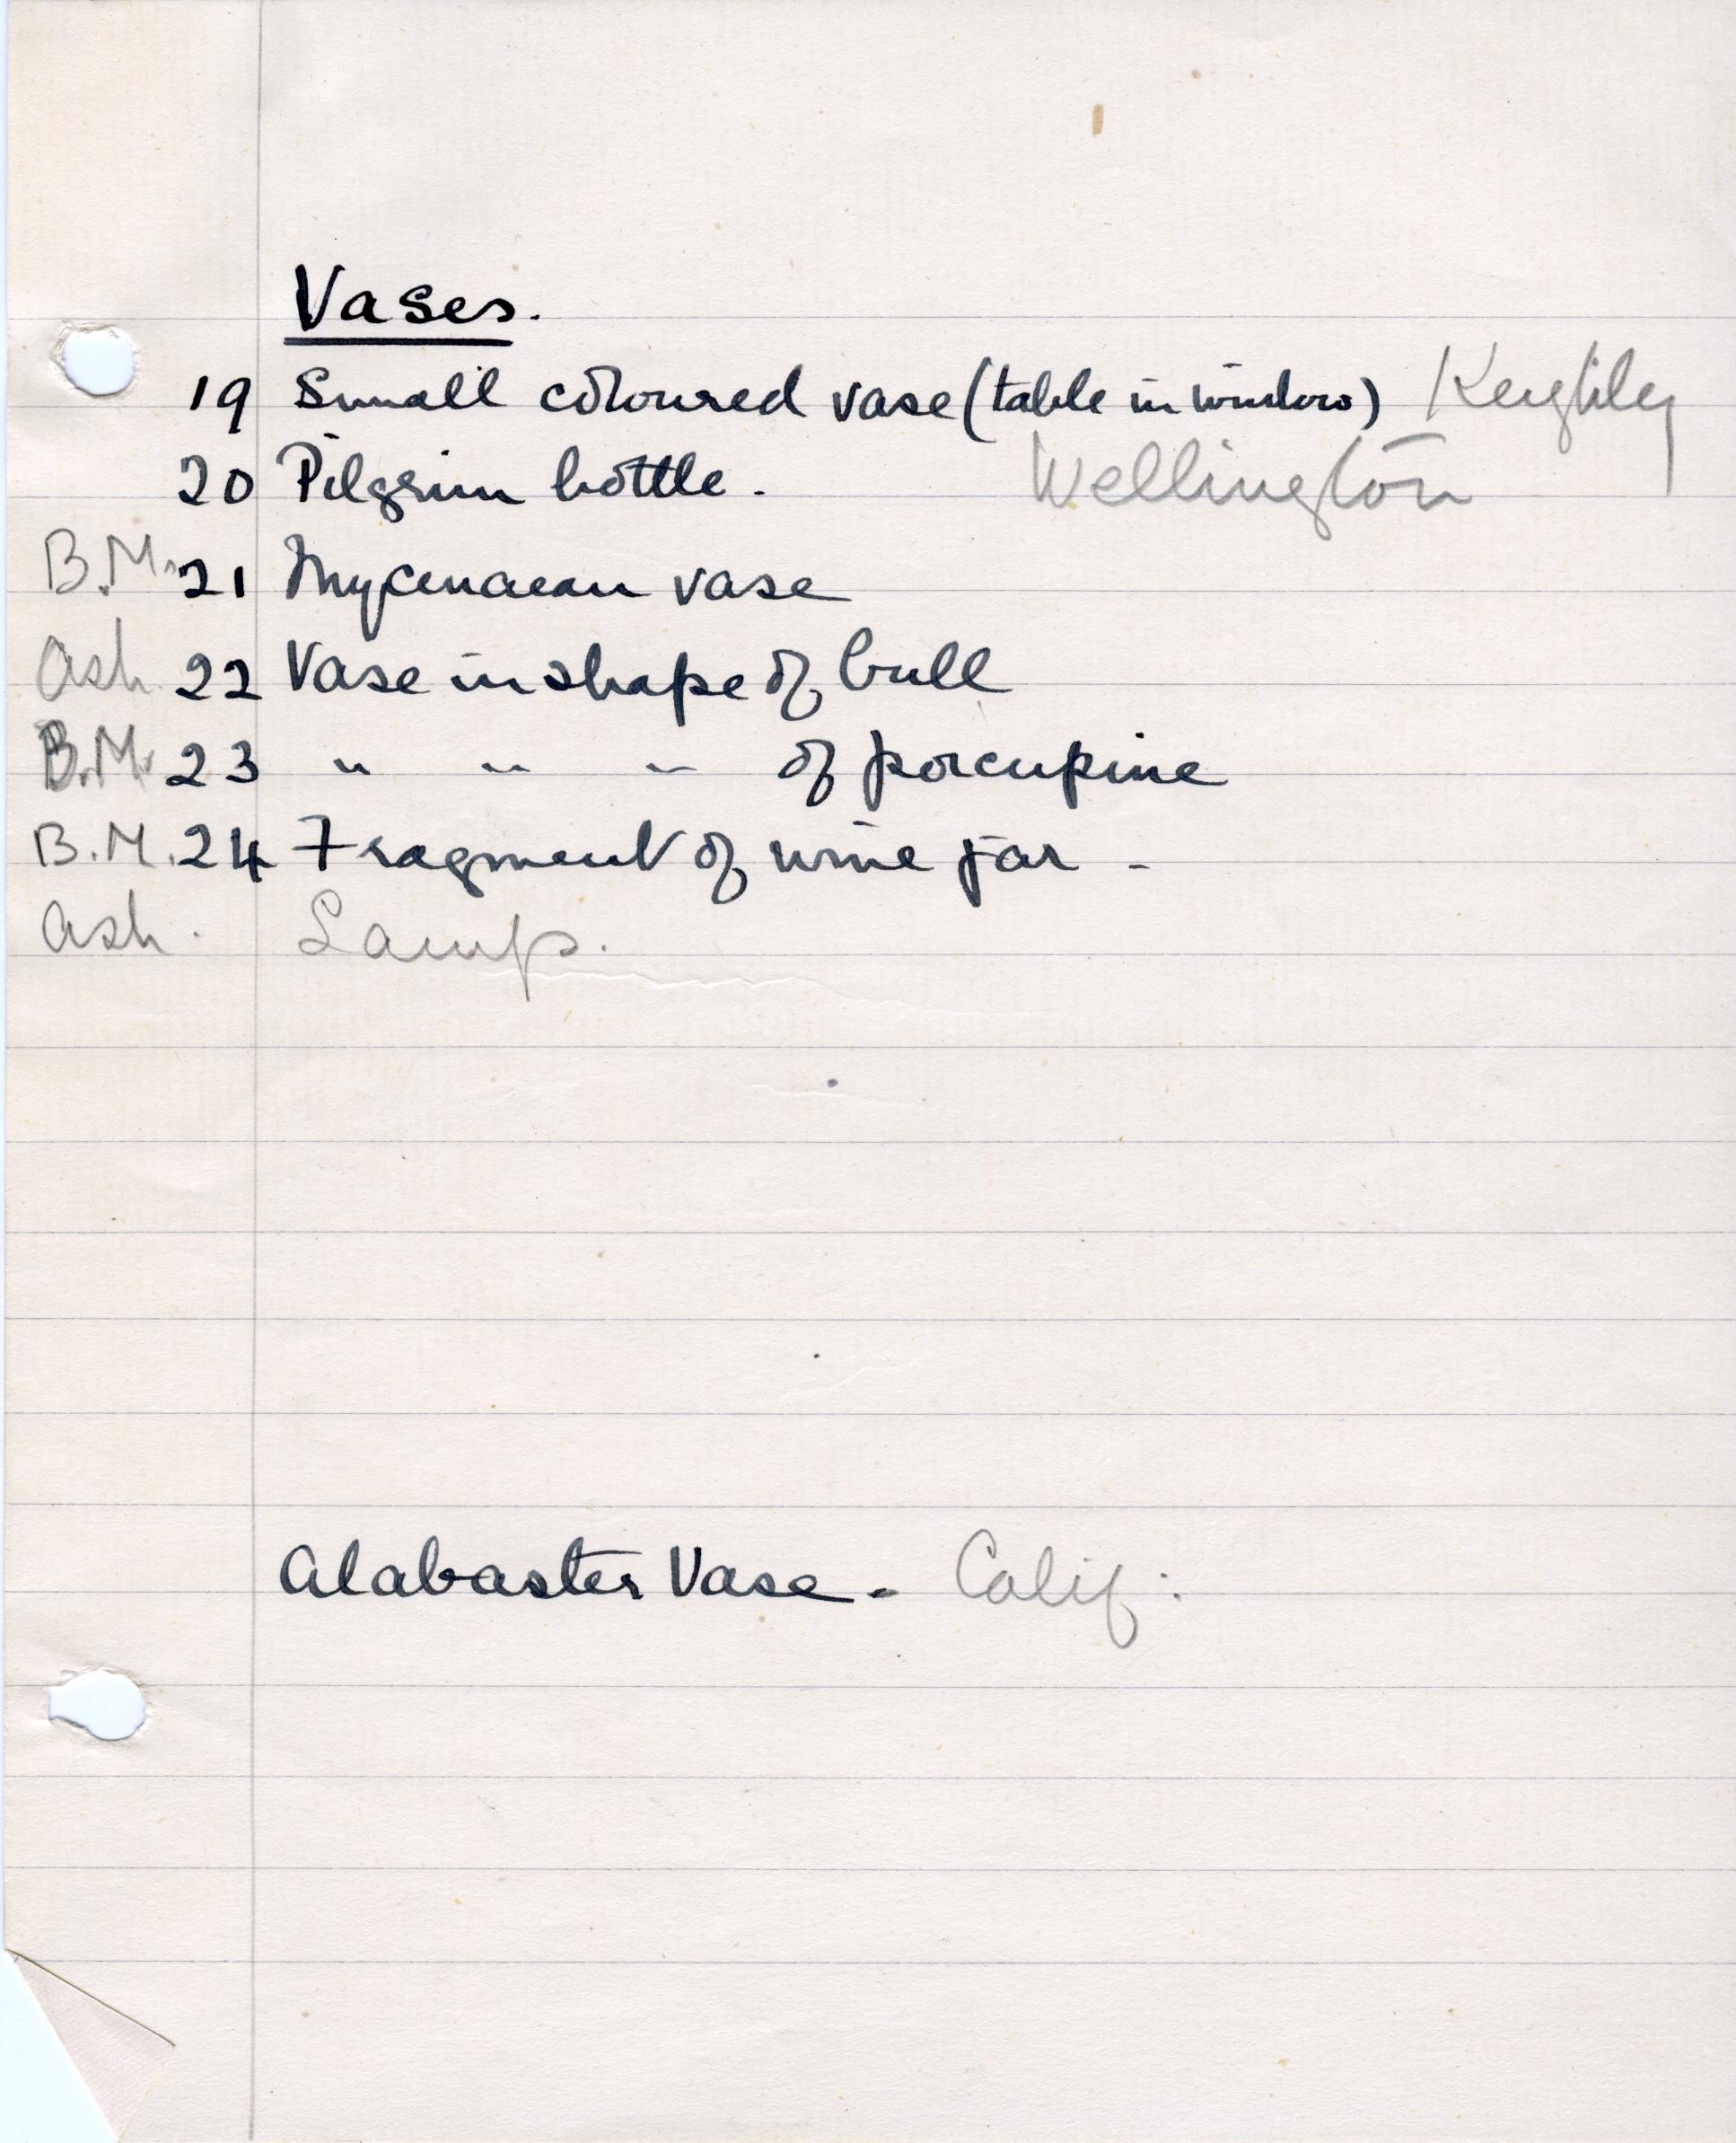 Vases.
19 Small coloured vase (table in window) Keighley
20 Pilgrim bottle. Wellington
B.M. 21 Mycenaean vase
Ash. 22 Vase in shape of bull
B.M. 23 " " " of porcupine
B.M. 24 Fragment of wine jar -
Ash. Lamp.
Alabaster Vase - Calif: